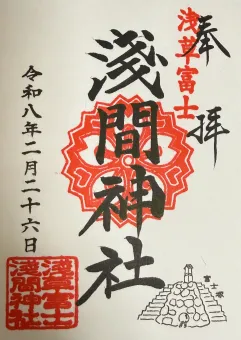 奉拝
浅草富士
淺間神社
令和八年二月二十六日
富士塚
浅草富士
浅間神社